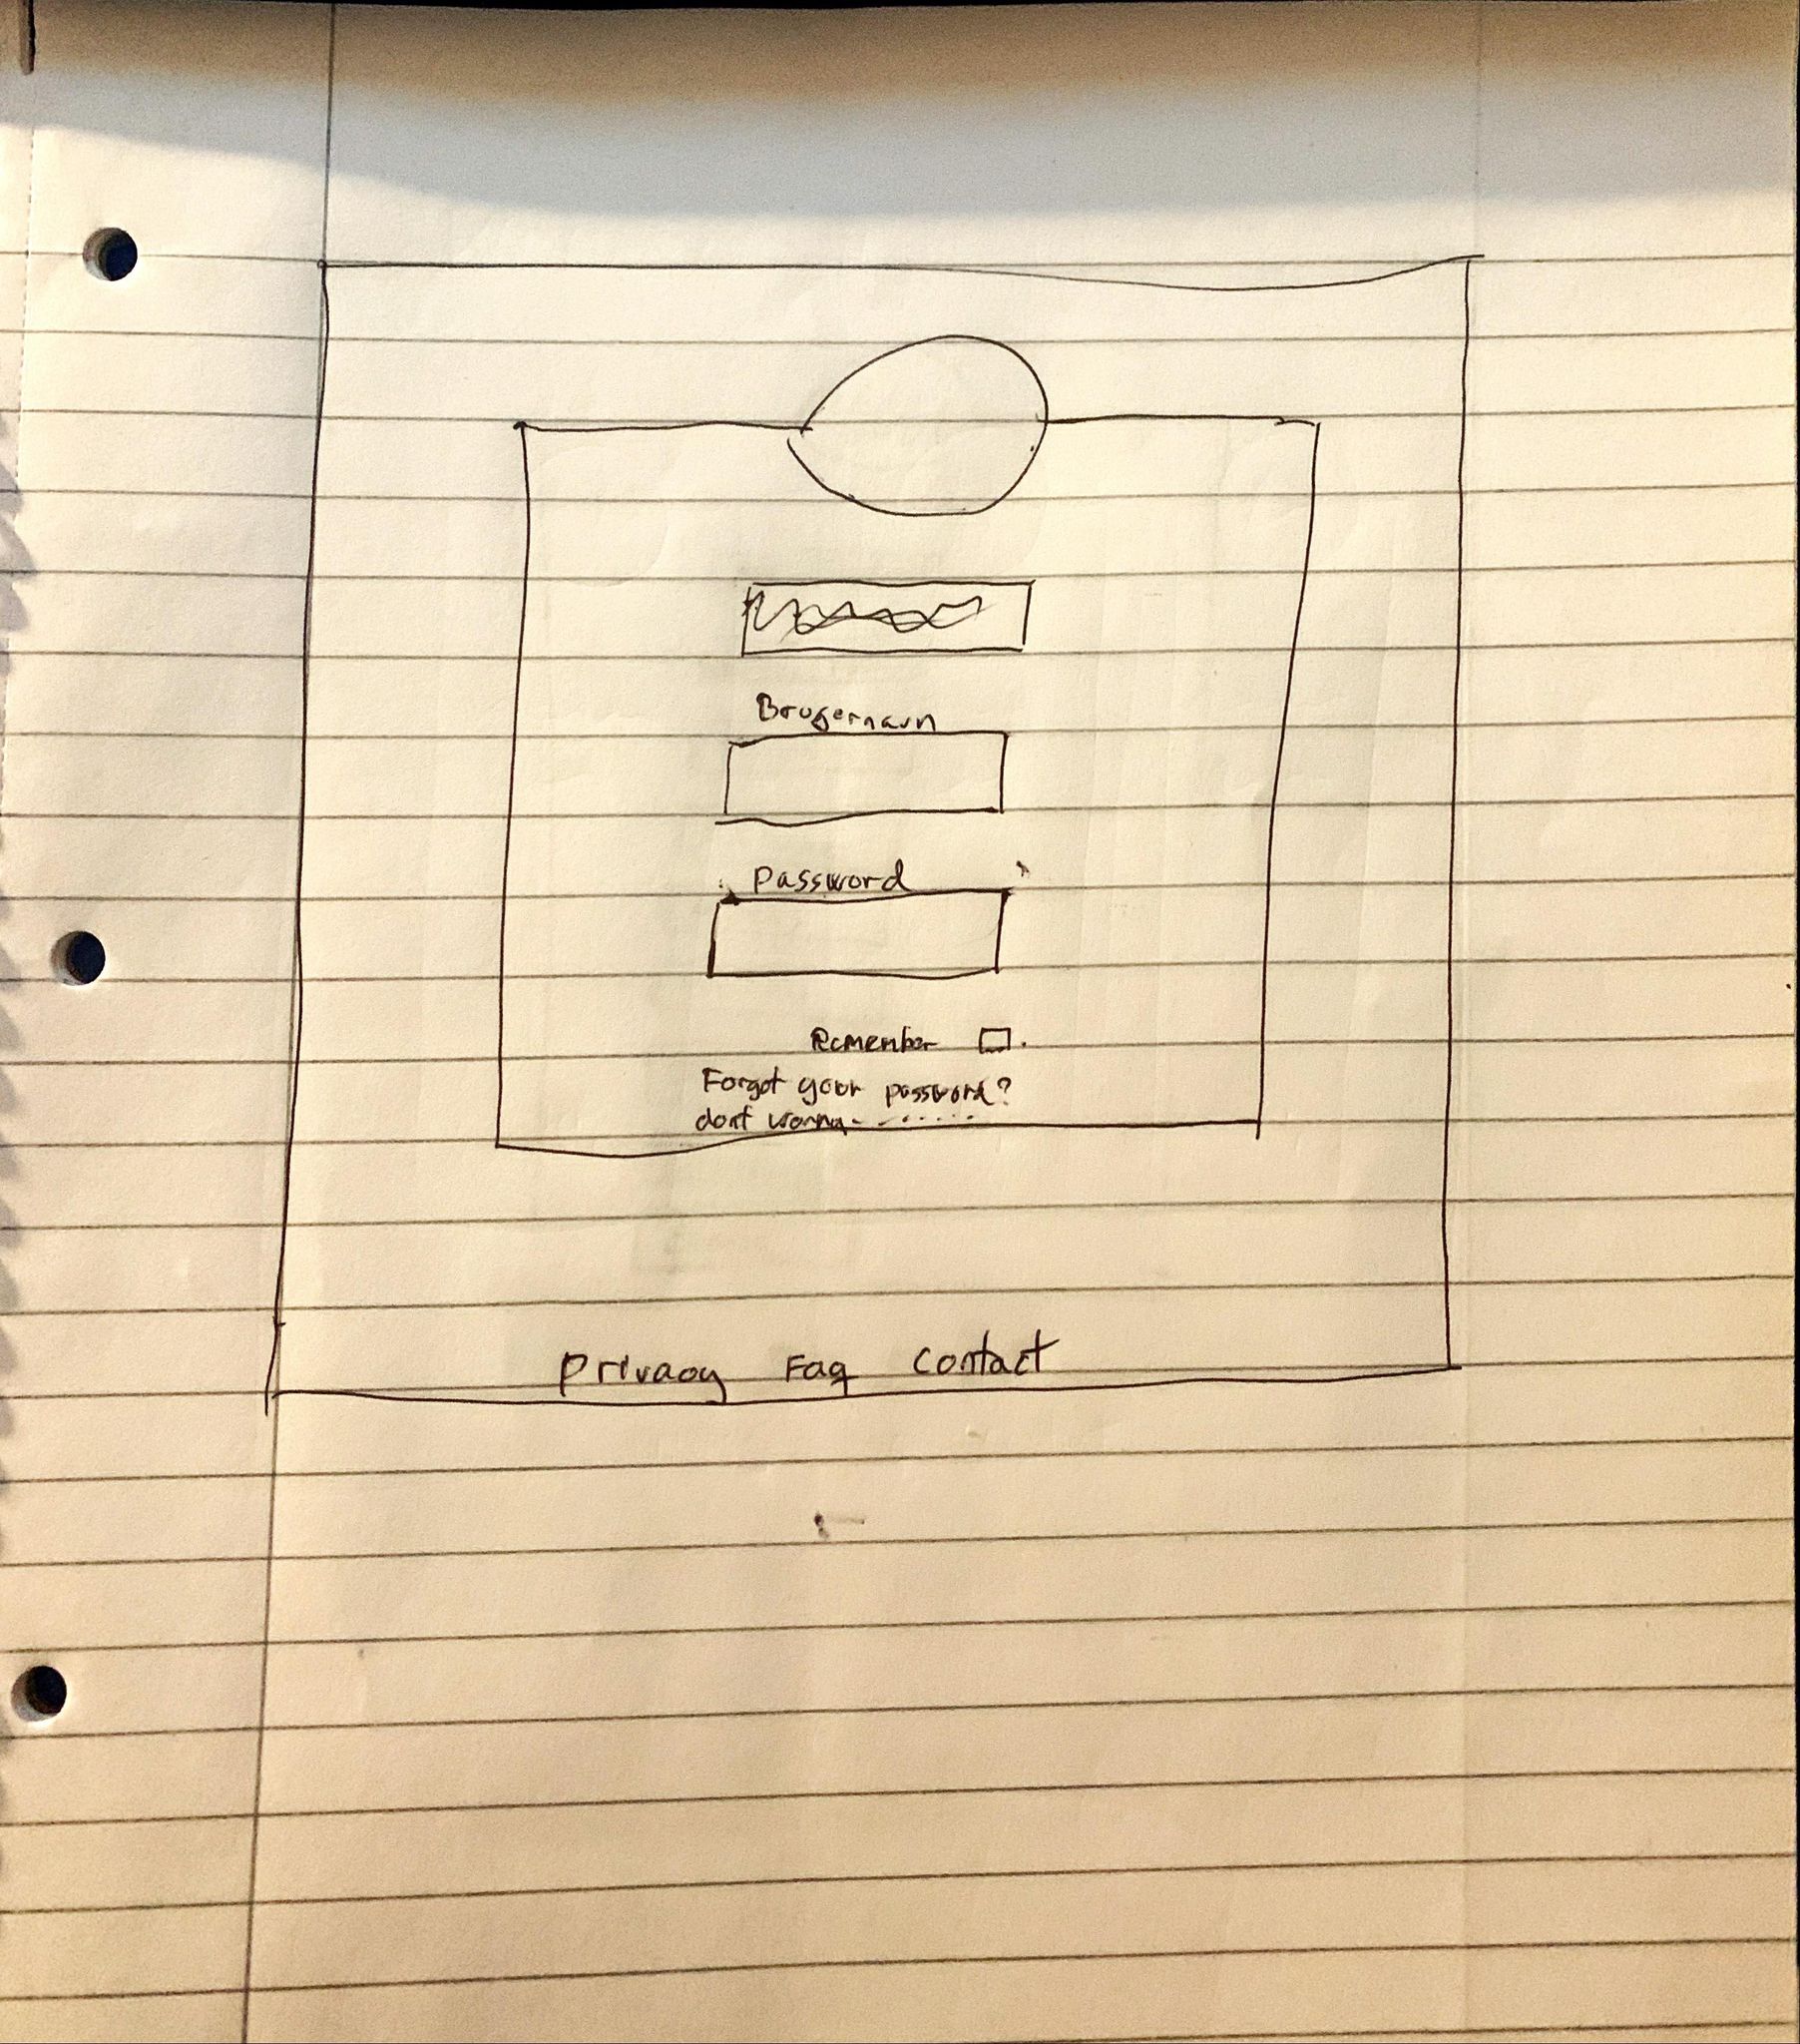 Brugernavn
Password
Remember
Forgot your password?
dont wanna- . . . . . . .
Privacy Faq Contact